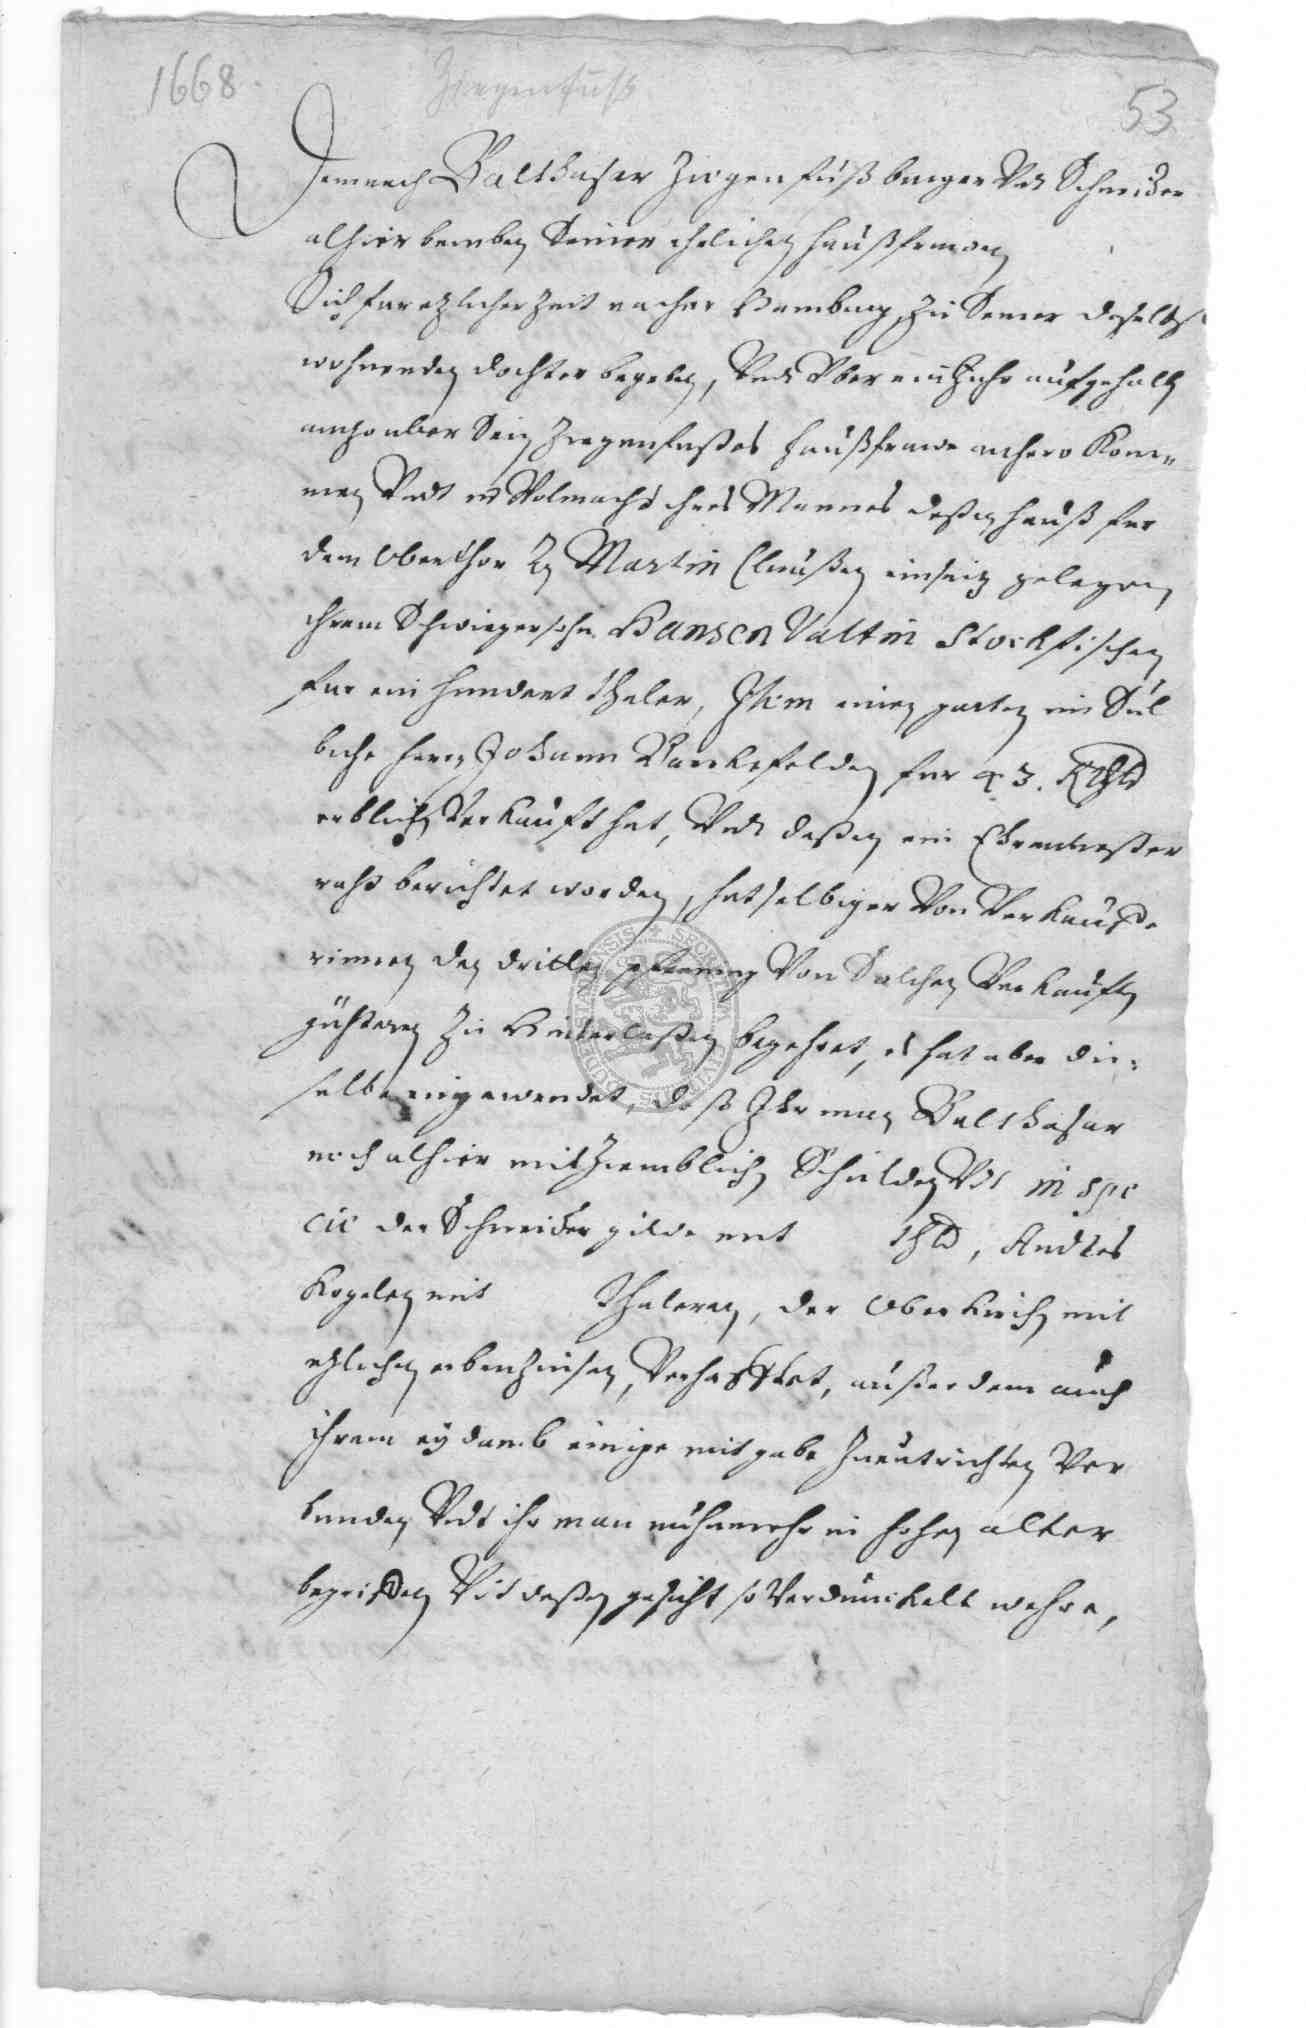 1668 Ziegenfuß 53
Demnach Balthasar Ziegenfuß burger Vndt Schneider
alhier beneben Seiner ehelichen haußfrawen
Sich fur etzlicher Zeit nacher Hamburg, Zu Seiner daselbst
wohnenden dochter begeben, Vndt Vber ein Jahr aufgehalten
anjtzo aber Sein Ziegenfußes haußfrawe anhero Kom-
men Vndt in Volmacht ihres Mannes deßen hauß fur
dem Oberthor an Martin Claußen einseitz gelegen
ihrem Schwiegersohn Hansen Valtin Stockfischen
fur ein hundert thaler, Item einen garten im Sül
beche herrn Johann Barckefelden fur 43. Rthlr
erblich Verkauft hat, Vndt deßen ein Ehrenvester
raht berichtet worden, hat selbiger Von Verkauffe
rinnen den dritten pfenning Von Solchen Verkauften
gühtern Zu hinterlaßen begehret, es hat aber die-
selbe eingewendet, daß Ihr man Balthasar
noch alhier mit Ziemblichen Schulden Vndt in spe
cie der Schneider gilde mit thlr, Andres
Kogelen mit Thalern, der Oberkirchen mit
etzlichen erbenzinsen, Verhafftet, außer dem auch
ihrem eydamb einige mitgabe Zuentrichten Ver
bunden Vndt ihr man nuhnmehr in hohen alter
begriffen Vndt deßen gesicht so Verdunckelt wehre,